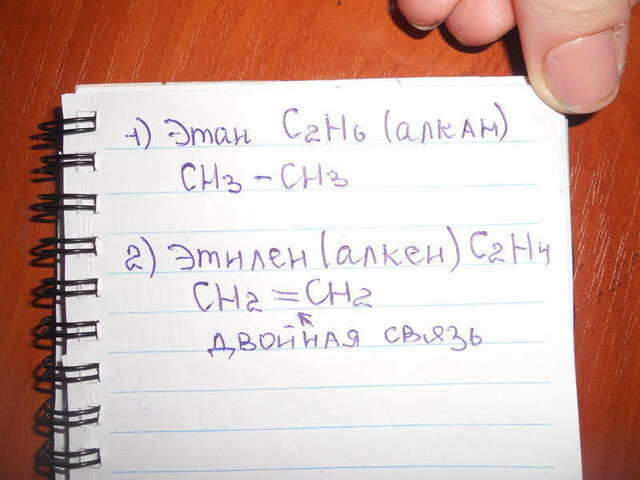 1) Этан C2H6 (алкан)
CH3 – CH3
2) Этилен (алкен) C2H4
CH2 = CH2
двойная связь